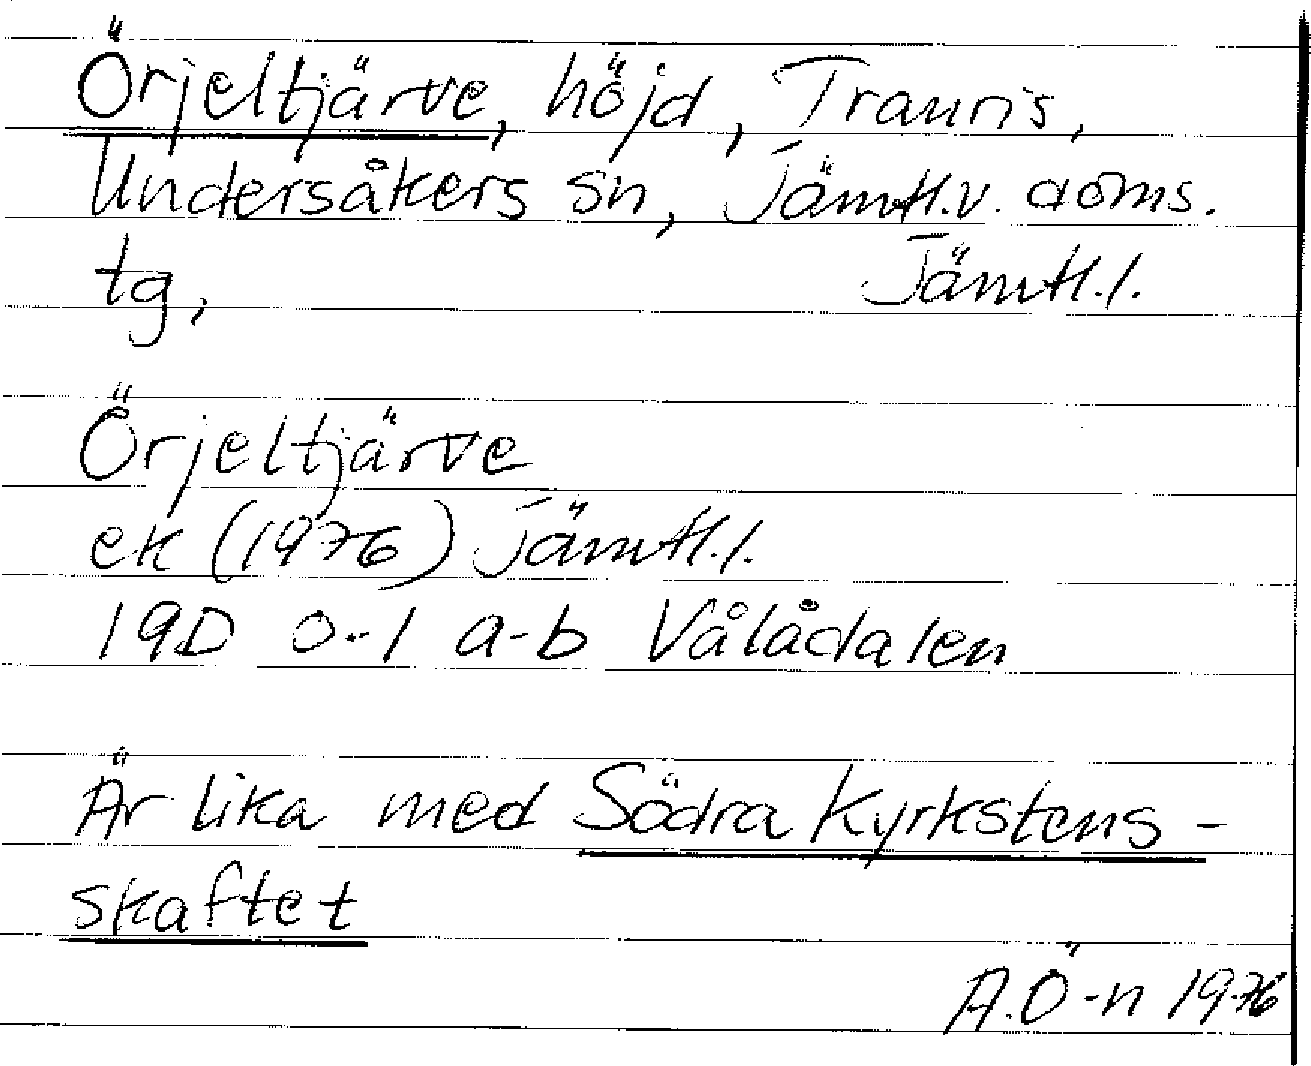 Örjeltjärve, höjd, Trauris,
Undersåkers sn, Jämtl.v. doms.
tg, Jämtl.l.
Örjeltjärve
ek (1976) Jämtl.l.
19D 0-1 a-b Vålådalen
Är lika med Södra Kyrkstens-
skaftet
A.Ö-n 1976